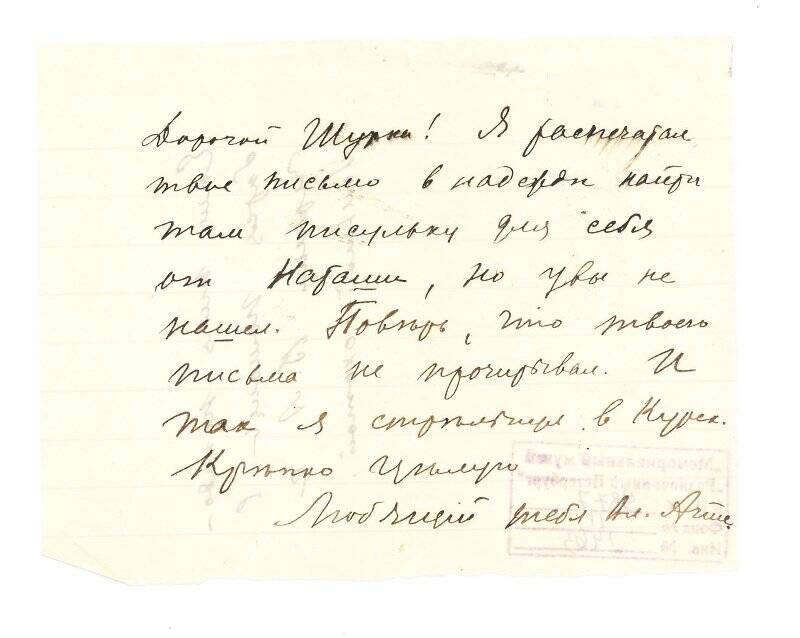 Дорогой Шурка! Я распечатал
твое письмо в надежде найти
там писульку для себя
от Наташи, но увы не
нашел. Повѣрь, что твоего
письма не прочитывал. И
так я въ Курск.
Крѣпко цѣлую
Любящий тебя Вл.
"Мемориальный музей
Петербург"
Фонд
Инв. №